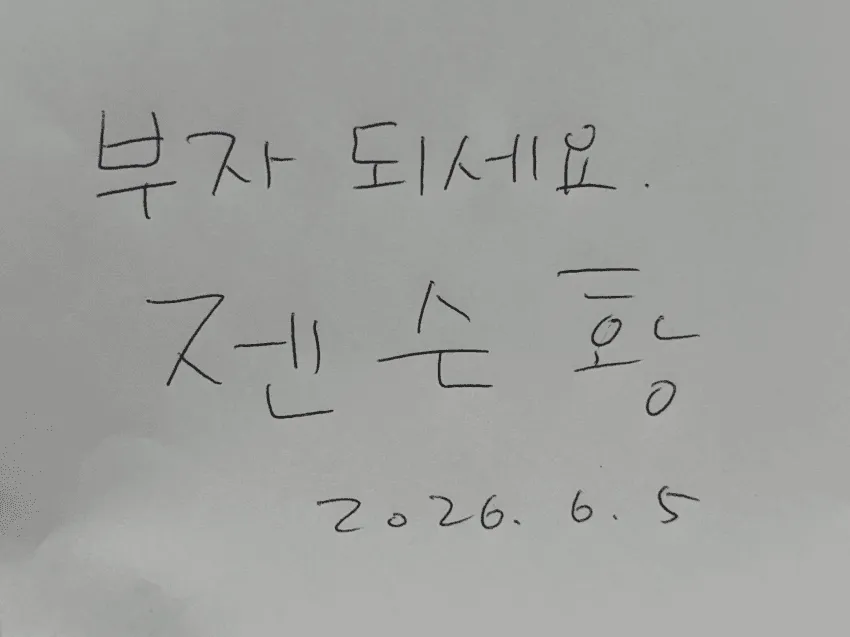 부자 되세요.
젠슨황
2026. 6. 5